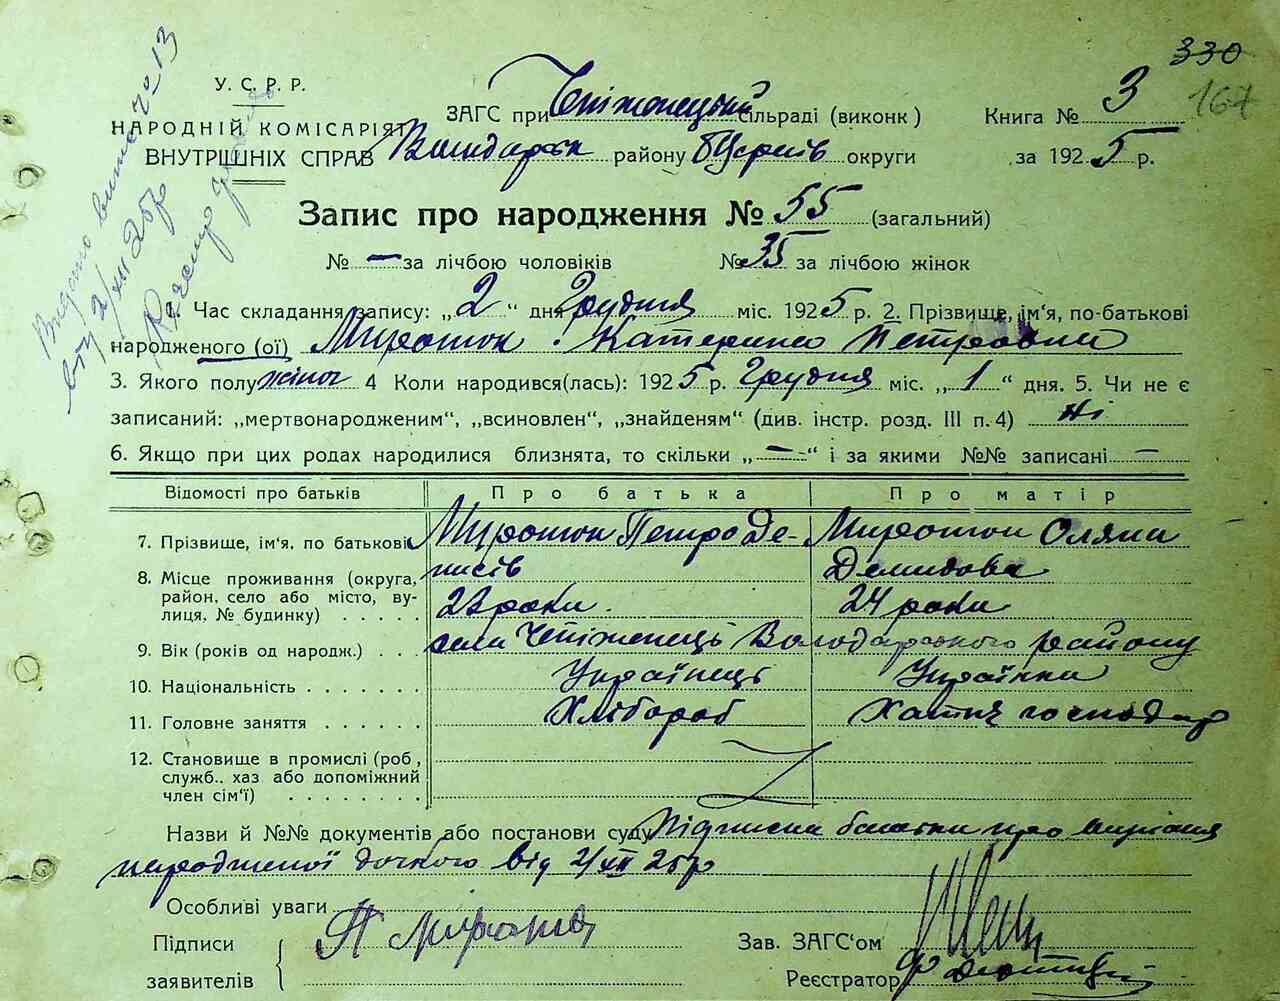 330
167
У. С. Р. Р.
НАРОДНІЙ КОМІСАРІЯТ
ВНУТРІШНІХ СПРАВ
ЗАГС при Чепіжинецький сільраді (виконк) Книга № 3
району округи за 1925 р.
Запис про народження № 55 (загальний)
№ — за лічбою чоловіків № 35 за лічбою жінок
1. Час складання запису: „2“ дня Грудня міс. 1925 р. 2. Прізвище, ім'я, по-батькові
народженого (ої) Мирошон Катерина Петровна
3. Якого полу жіноч 4 Коли народився(лась): 1925 р. Грудня міс. „1“ дня. 5. Чи не є
записаний: „мертвонародженим“, „всиновлен“, „знайденям“ (див. інстр. розд. III п. 4) Ні
6. Якщо при цих родах народилися близнята, то скільки „—“ і за якими №№ записані —
Відомості про батьків Про батька Про матір
7. Прізвище, ім'я, по батькові Мирошон Петро Де- Мирошон Оляна
нисів Демидова
8. Місце проживання (округа,
район, село або місто, ву-
лиця, № будинку)
роки. 24 роки
9. Вік (років од народж.) села Володарського району
10. Національність Українець Українка
11. Головне заняття Хлібороб Хатня господар
12. Становище в промислі (роб,
служб.. хаз або допоміжний
член сім'ї)
Назви й №№ документів або постанови суду Підписка батьки про
народженої дочкою від 2/XII 25 р
Особливі уваги
Підписи
заявителів
Зав. ЗАГС'ом
Реєстратор